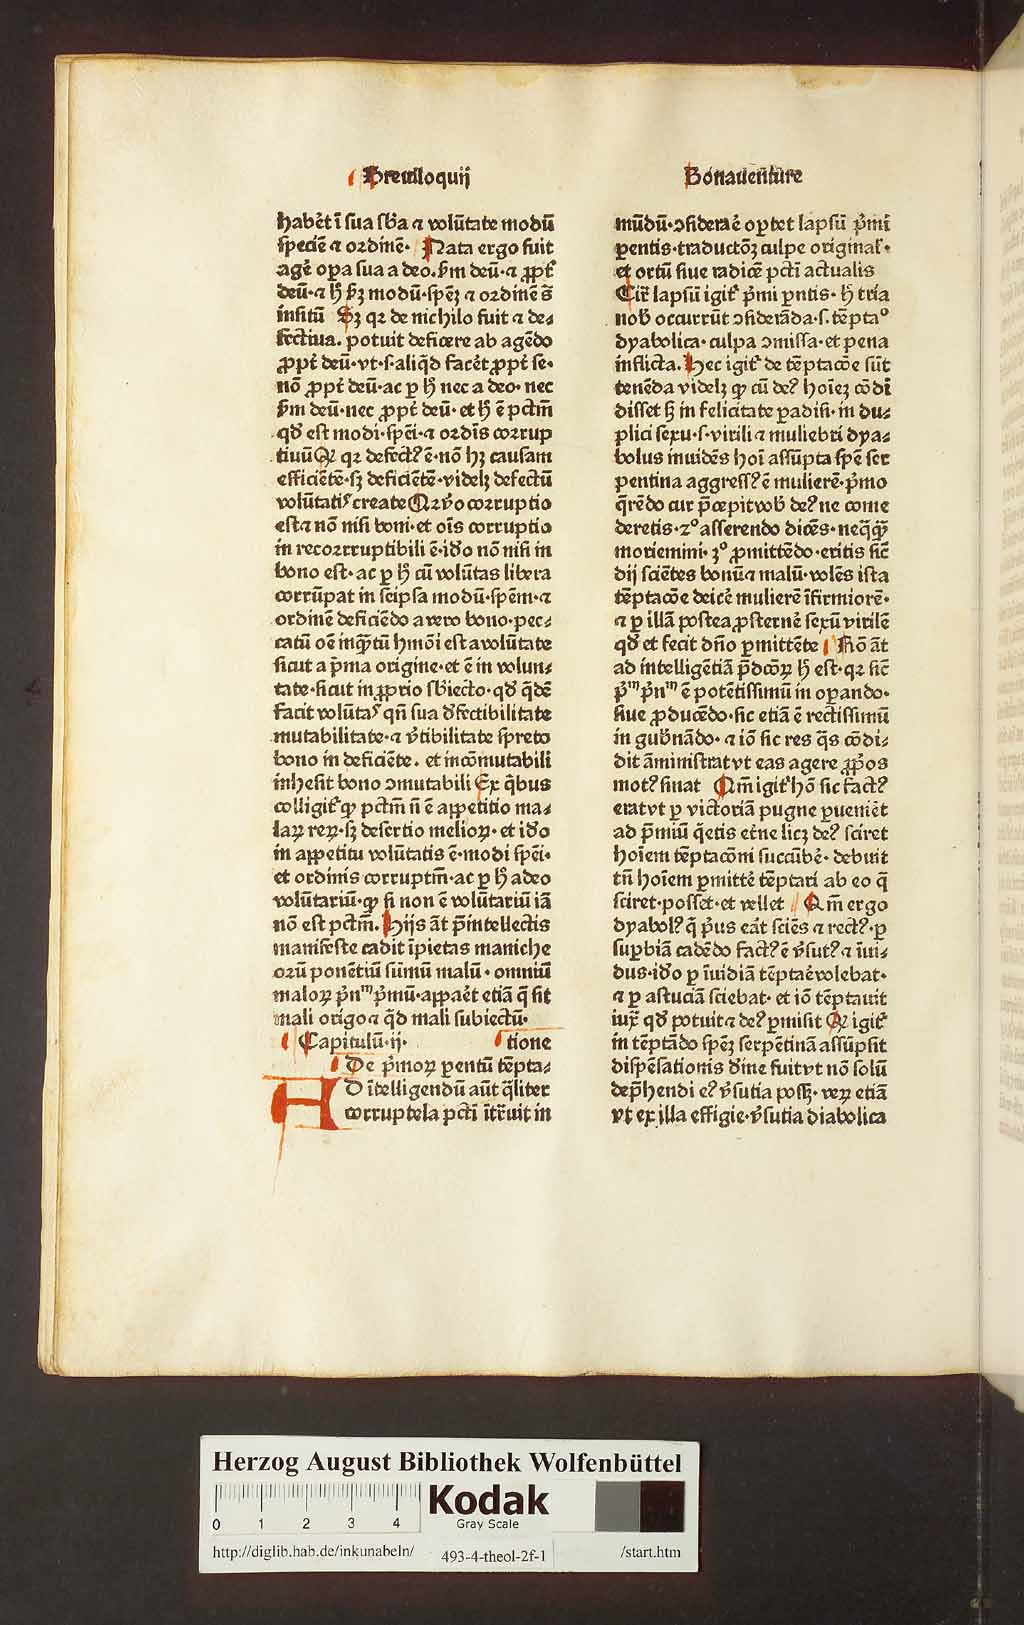 Breuiloquij
Bonauēture
habēt ī sua sb̄a ⁊ volūtate modū
speciē ⁊ ordinē· Nata ergo fuit
agē oꝑa sua a deo. ẜm deū·⁊ ꝓpt̄
deū·⁊ h̄ ẜꝫ modū·spēꝫ ⁊ ordinē s̄
insitū Sꝫ qꝛ de nichilo fuit ⁊ de⸗
fectiua. potuit deficere ab agēdo
ꝓpt̄ deū·vt·s·aliq̄d facēt ꝓpt̄ se·
nō ꝓpt̄ deū·ac ꝑ h̄ nec a deo· nec
ẜm deū·nec ꝓpt̄ deū·et h̄ ē pctm̄
qd̄ est modi·spēi·⁊ ordīs corrup
tiuū Q̄ qꝛ defect⁹ ē·nō hꝫ causam
efficiētē·sꝫ deficiētē·videlꝫ defectū
volūtatis create Q̄ v̄o corruptio
est ⁊ nō nisi boni·et oīs corruptio
in recorrruptibili ē·id̄o nō nisi in
bono est·ac ꝑ h̄ cū volūtas libera
corrūpat in seipsa modū·spēm·⁊
ordinē deficiēdo a vero bono·pec⸗
catū oē inq̄ꝫtū hmōi est a volūtate
sicut a p̄ma origine·et ē in volun⸗
tate·sicut in ꝓprio sb̄iecto·qd̄ q̄dē
facit volūtas qn̄ sua d̄fectibilitate
mutabilitate·⁊ v̄tibilitate spreto
bono in deficiēte. et incōmutabili
inhesit bono ɔmutabili Ex q̄bus
colligit̄ ꝙ pctm̄ n̄ ē appetitio ma⸗
laꝝ reꝝ·sꝫ desertio melioꝝ·et id̄o
in appetitu volūtatis ē·modi spēi·
et ordinis corruptm̄·ac ꝑ h̄ adeo
volūtariū·ꝙ si non ē volūtariū iā
nō est pctm̄. Hijs āt p̄intellectis
manifeste cadit īpietas maniche
orū ponētiū sūmū malū·omniū
maloꝝ p̄nᵐ p̄mū·appaēt etiā q̄ sit
mali origo ⁊ q̄d mali subiectū·
Capitulū·ij· tione
De p̄moꝝ ꝑentū tēpta⸗
AD ītelligendū aūt q̄liter
corruptela pcti īt̄uit in
mūdū·ɔsiderāē oꝑtet lapsū p̄mi
ꝑentis·traductōꝫ culpe original̄·
et ortū siue radicē pcti actualis
Cir̄ lapsū igit̄ p̄mi ꝑntis·h̄ tria
nob̄ occurrūt ɔsiderāda·s·tēptaᵒ
dyabolica·culpa ɔmissa·et pena
inflicta. Hec igit̄ de tēptacōe sūt
tenēda videlꝫ ꝙ cū de⁹ hoīeꝫ cōdi
disset h̄ in felicitate ꝑadisi·in du⸗
plici sexu·s·virili ⁊ muliebri dya⸗
bolus inuidēs hoī assūpta spē ser
pentina aggress⁹ ē mulierē·p̄mo
q̄rēdo cur p̄cepit vob̄ de⁹ ne come
deretis·2ᵒ asserendo dicēs·neq̄q̄ꝫ
moriemini·3ᵒ ꝓmittēdo·eritis sic̄
dij sciētes bonū ⁊ malū·volēs ista
tēptacōe deicē mulierē īfirmiorē·
⁊ ꝑ illā postea ꝓsternē sexū virilē
qd̄ et fecit dn̄o ꝑmittēte Rō āt
ad intelligētiā p̄dcōꝝ h̄ est·qꝛ sic̄
p̄ᵐ p̄nᵐ ē potētissimū in oꝑando·
siue ꝓducēdo·sic etiā ē rectissimū
in gub̄nādo·⁊ iō sic res q̄s cōdi⸗
dit āministrat vt eas agere ꝓp̄os
mot⁹ sinat Qm̄ igit̄ hō sic fact⁹
erat vt ꝑ victoriā pugne ꝑueniēt
ad p̄miū q̄etis et̄ne licꝫ de⁹ sciret
hoīem tēptacōni succūbē·debuit
tn̄ hoīem ꝑmittē tēptari ab eo q̄
sciret·posset·et vellet Qm̄ ergo
dyabol⁹ q̄ p̄us eāt sciēs ⁊ rect⁹·ꝑ
suꝑbiā cadēdo fact⁹ ē v̄sut⁹ ⁊ īui⸗
dus·id̄o ꝑ īuidiā tēptaē volebat·
⁊ ꝑ astuciā sciebat·et iō tēptauit
iux̄ qd̄ potuit ⁊ de⁹ ꝑmisit Q̄ igit̄
in tēptādo spēꝫ serpētinā assūpsit
dispēsationis d̄ine fuit vt nō solū
dep̄hendi e⁹ v̄sutia possꝫ·veꝝ etiā
vt ex illa effigie·v̄sutia diabolica
Herzog August Bibliothek Wolfenbüttel
0 1 2 3 4
Kodak
Gray Scale
http://diglib.hab.de/inkunabeln/ 493-4-theol-2f-1 /start.htm